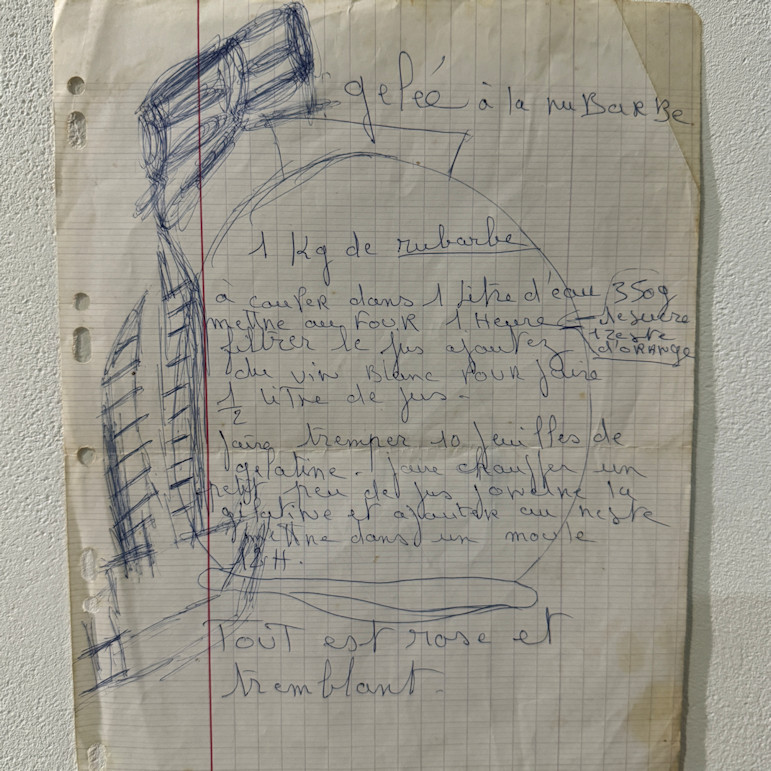 geleé à la ruBaRBe
1 Kg de rubarbe
à couper dans 1 litre d'eau 350g
mettre au FOUR 1 Heure de sucre
1 zeste
filtrer le jus ajoutez d'ORANGE
du vin Blanc POUR faire
1/2 litre de jus.
faire tremper 10 feuilles de
gelatine. faire chauffer un
petit peu de jus fondre la
gelatine et ajouter au reste
mettre dans un moule
12 H.
TOUT est rose et
tremblant.